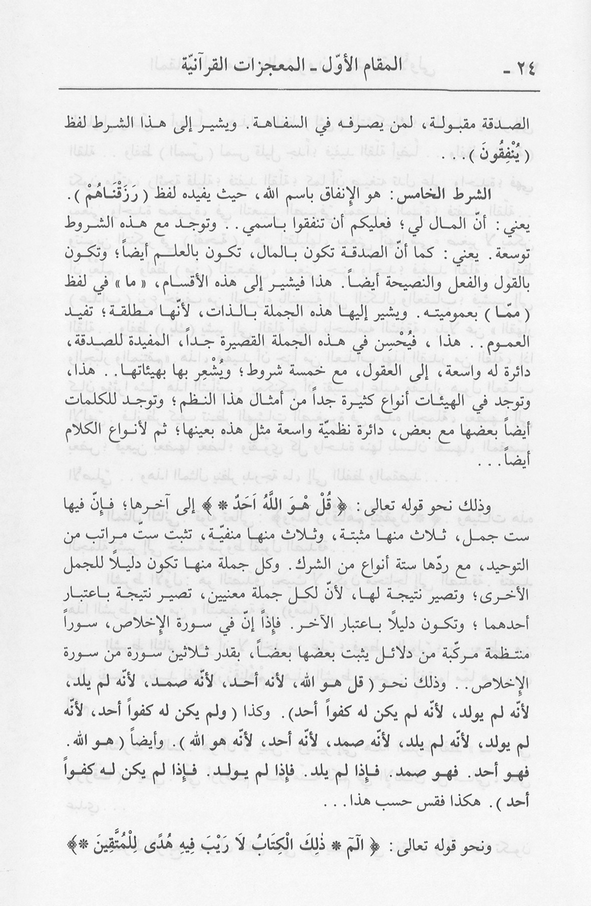 ٢٤ - المقام الأوّل - المعجزات القرآنيّة
الصدقة مقبولة، لمن يصرفه في السفاهة. ويشير إلى هذا الشرط لفظ
( يُنْفِقُونَ )...
الشرط الخامس: هو الإنفاق باسم الله، حيث يفيده لفظ ( رَزَقْنَاهُمْ ).
يعني: أنّ المال لي؛ فعليكم أن تنفقوا باسمي.. وتوجد مع هذه الشروط
توسعة. يعني: كما أنّ الصدقة تكون بالمال، تكون بالعلم أيضاً؛ وتكون
بالقول والفعل والنصيحة أيضاً. هذا فيشير إلى هذه الأقسام، « ما » في لفظ
( ممّا ) بعموميته. ويشير إليها هذه الجملة بالذات، لأنّها مطلقة؛ تفيد
العموم.. هذا ، فيُحْسن في هذه الجملة القصيرة جداً، المفيدة للصدقة،
دائرة له واسعة، إلى العقول، مع خمسة شروط؛ ويُشْعِر بها بهيئاتها.. هذا،
وتوجد في الهيئات أنواع كثيرة جداً من أمثال هذا النظم؛ وتوجد للكلمات
أيضاً بعضها مع بعض، دائرة نظميّة واسعة مثل هذه بعينها؛ ثم لأنواع الكلام
أيضاً...
وذلك نحو قوله تعالى: ﴿ قُلْ هُوَ اللَّهُ اَحَدٌ * ﴾ إلى آخرها؛ فإنّ فيها
ست جمل، ثلاث منها مثبتة، وثلاث منها منفيّة، تثبت ستّ مراتب من
التوحيد، مع ردّها ستة أنواع من الشرك. وكل جملة منها تكون دليلاً للجمل
الأخرى؛ وتصير نتيجة لها، لأنّ لكل جملة معنيين، تصير نتيجة باعتبار
أحدهما ؛ وتكون دليلاً باعتبار الآخر. فإذاً إنّ في سورة الإخلاص، سوراً
منتظمة مركّبة من دلائل يثبت بعضها بعضاً، بقدر ثلاثين سورة من سورة
الإخلاص.. وذلك نحو ( قل هو الله، لأنه أحد، لأنّه صمد، لأنّه لم يلد،
لأنه لم يولد، لأنّه لم يكن له كفواً أحد). وكذا ( ولم يكن له كفواً أحد، لأنّه
لم يولد، لأنه لم يلد، لأنّه صمد، لأنّه أحد، لأنّه هو الله ). وأيضاً ( هو الله.
فهو أحد. فهو صمد. فإذا لم يلد. فإذا لم يولد. فإذا لم يكن له كفواً
أحد ). هكذا فقس حسب هذا...
ونحو قوله تعالى: ﴿ الٓمٓ * ذٰلِكَ الْكِتَابُ لَا رَيْبَ فِيهِ هُدًى لِلْمُتَّقِينَ *﴾